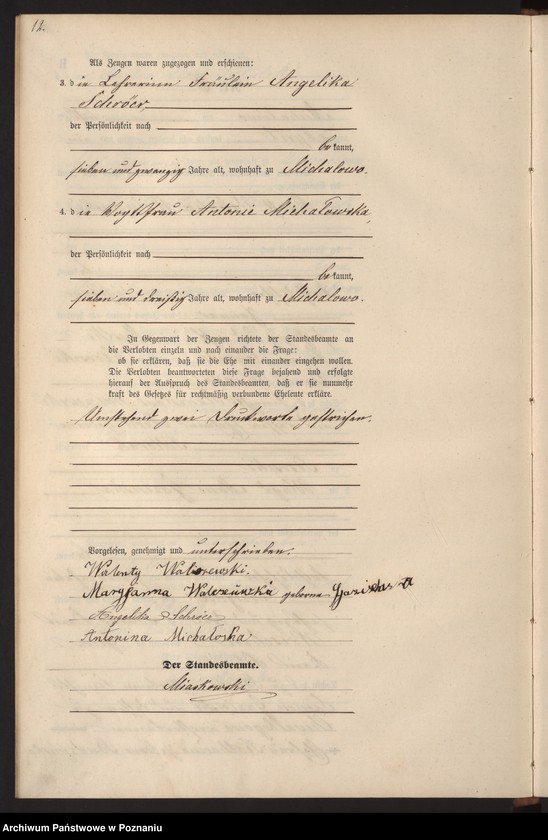 12.
Als Zeugen waren zugezogen und erschienen:
3. die Lehrerinn Fräulein Angelika
Schröer,
der Persönlichkeit nach
bekannt,
sieben und zwanzig Jahre alt, wohnhaft zu Michalowo.
4. die Vogtfrau Antonie Michałowska,
der Persönlichkeit nach
bekannt,
sieben und dreißig Jahre alt, wohnhaft zu Michalowo.
In Gegenwart der Zeugen richtete der Standesbeamte an
die Verlobten einzeln und nach einander die Frage:
ob sie erklären, daß sie die Ehe mit einander eingehen wollen.
Die Verlobten beantworteten diese Frage bejahend und erfolgte
hierauf der Ausspruch des Standesbeamten, daß er sie nunmehr
kraft des Gesetzes für rechtmäßig verbundene Eheleute erkläre.
Umstehend zwei Druckworte gestrichen.
Vorgelesen, genehmigt und unterschrieben.
Walenty
Maryjanna geborne
Angelika Schröer
Antonina Michałoska
Der Standesbeamte.
Miaskowski
Archiwum Państwowe w Poznaniu